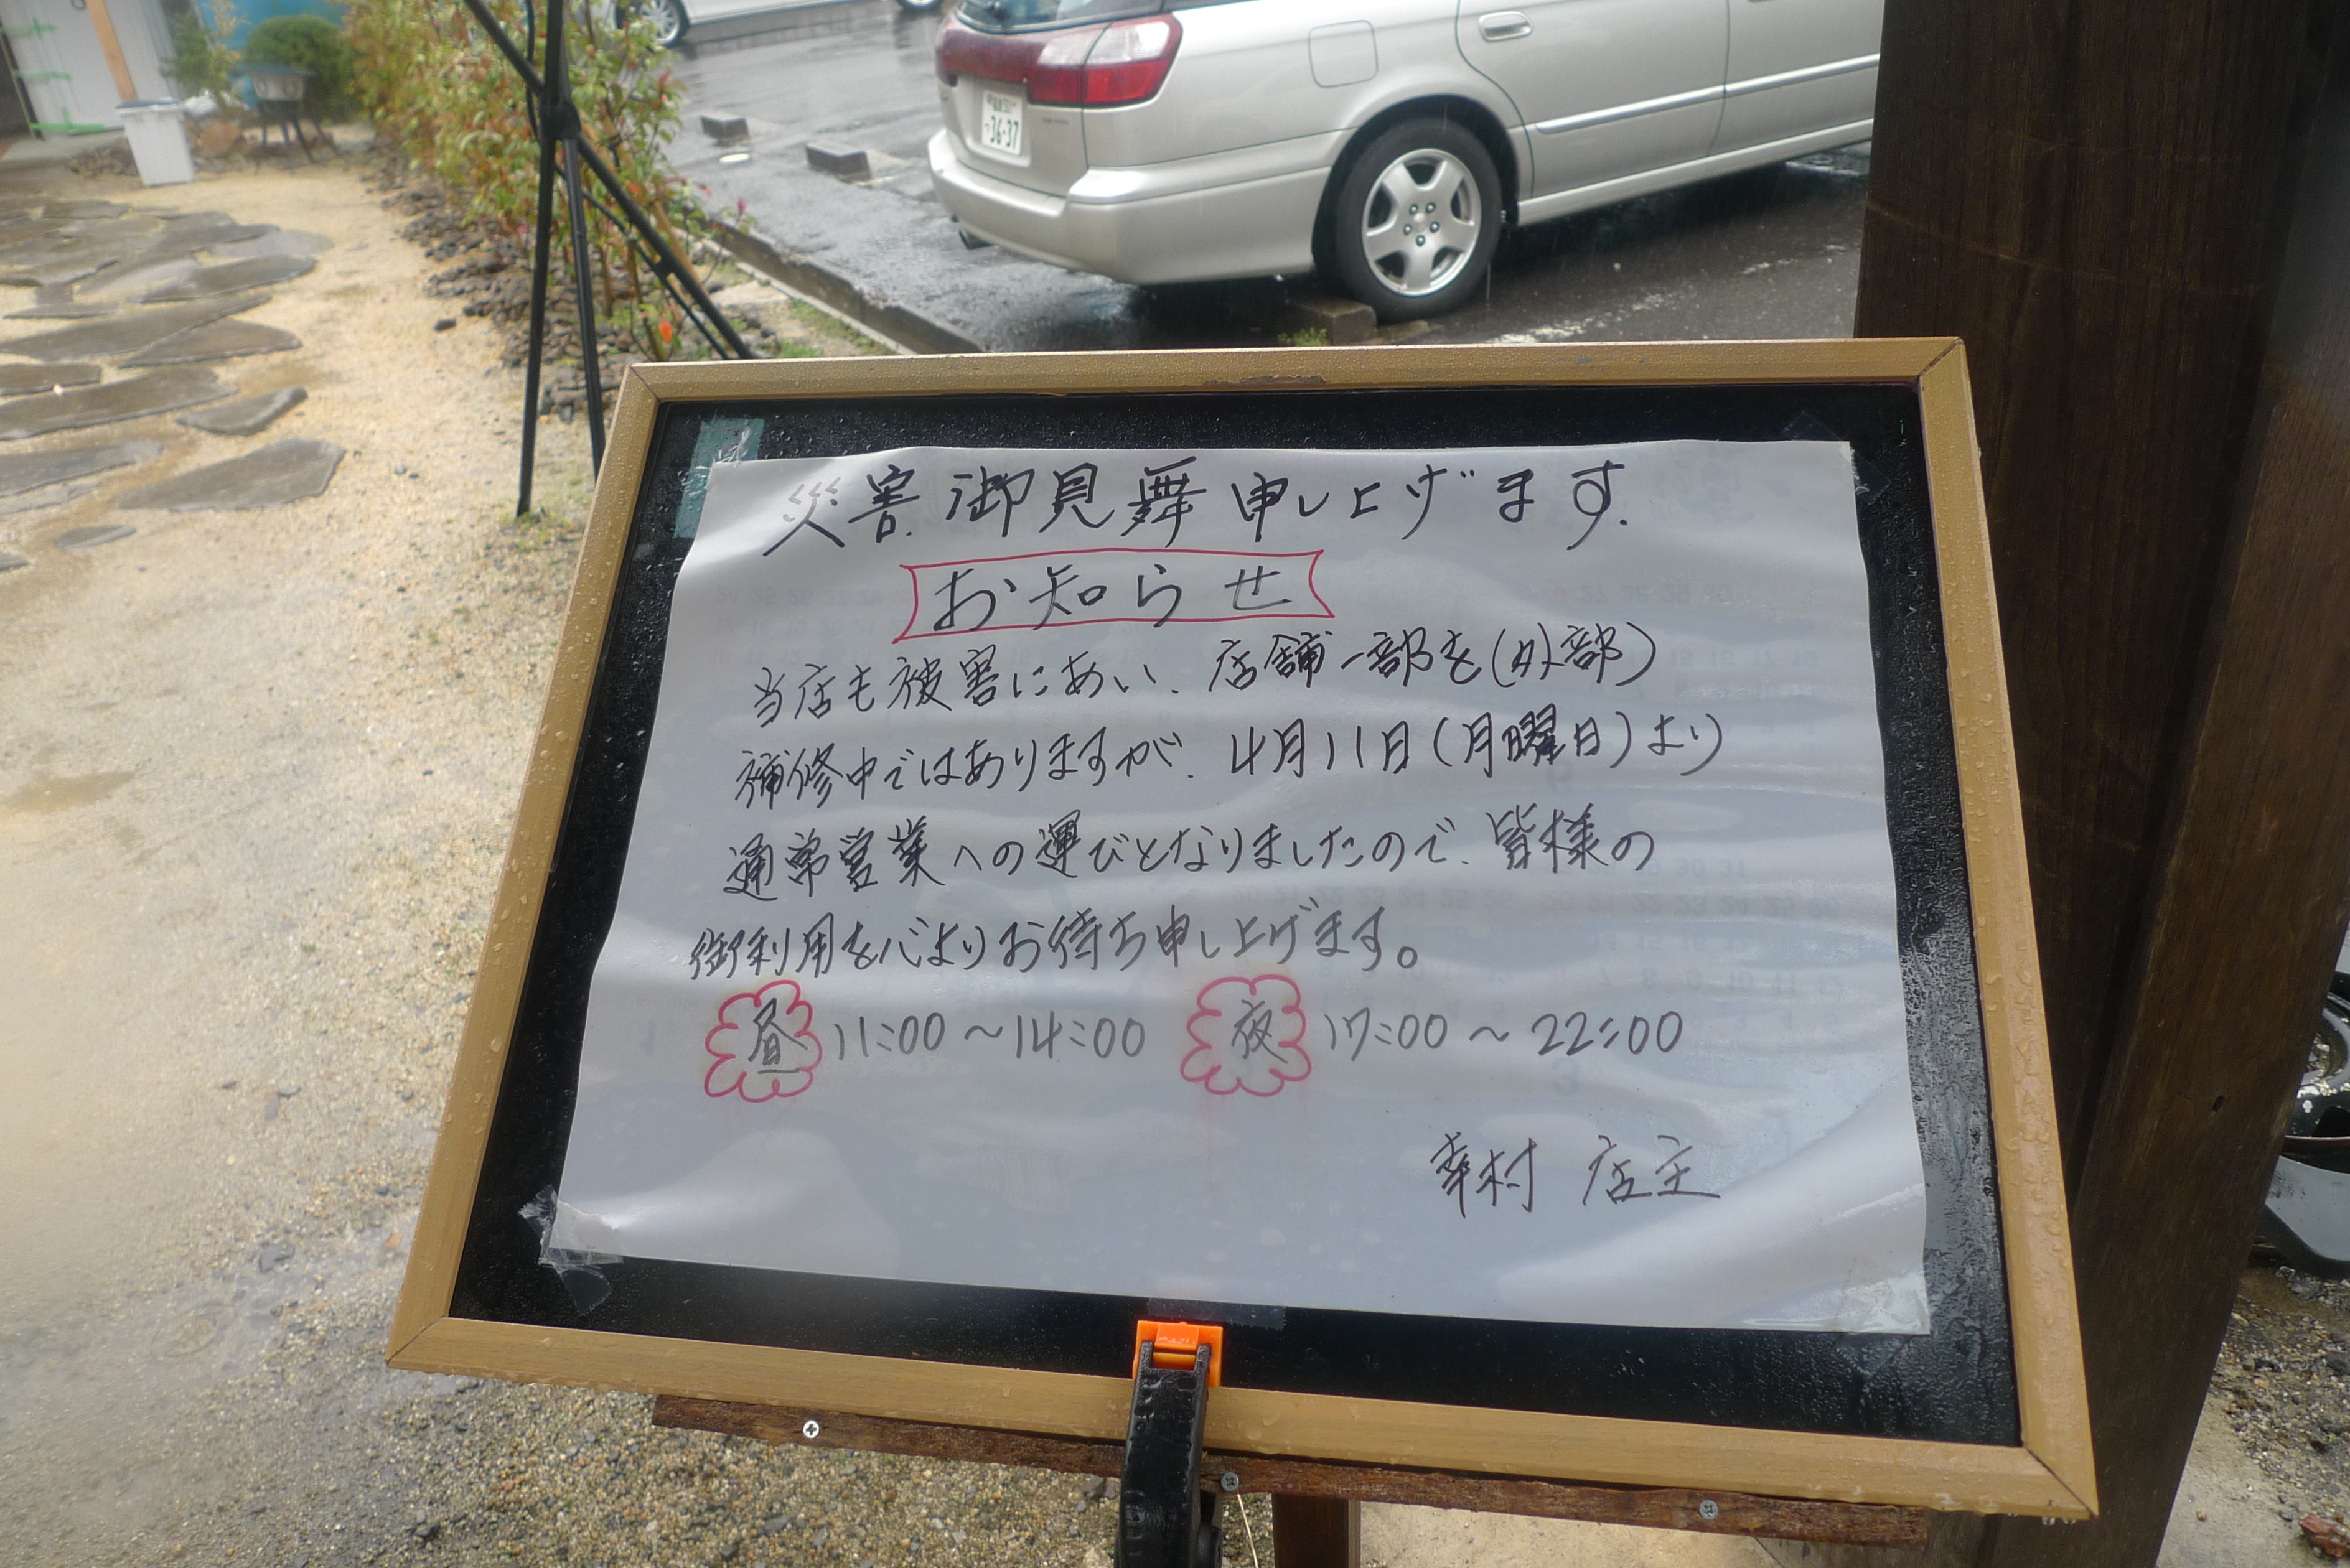 災害御見舞申し上げます.
お知らせ
当店も被害にあい、店舗一部を(外部)
補修中ではありますが、4月11日(月曜日)より
通常営業への運びとなりましたので、皆様の
御利用を心よりお待ち申し上げます。
昼 11:00~14:00 夜 17:00~22:00
幸村 店主
36-37